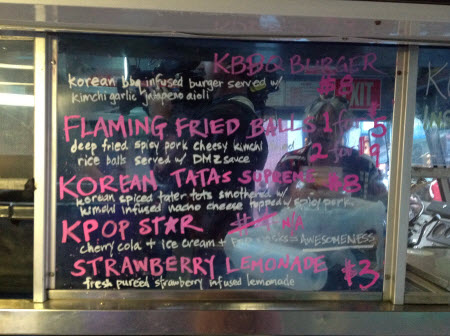 KBBQ BURGER
Korean bbq infused burger served w/ $8
Kimchi garlic jalapeno aioli
EXIT
FLAMING FRIED BALLS 1 for $5
deep fried spicy pork cheesy kimchi
rice balls served w/ DMZ sauce 2 for $9
KOREAN TATAS SUPREME $8
Korean spiced tater tots smothered w/
Kimchi infused nacho cheese topped w/ spicy pork
KPOP STAR N/A
cherry cola + ice cream + rocks = AWESOMENESS
STRAWBERRY LEMONADE $3
fresh pureed strawberry infused lemonade